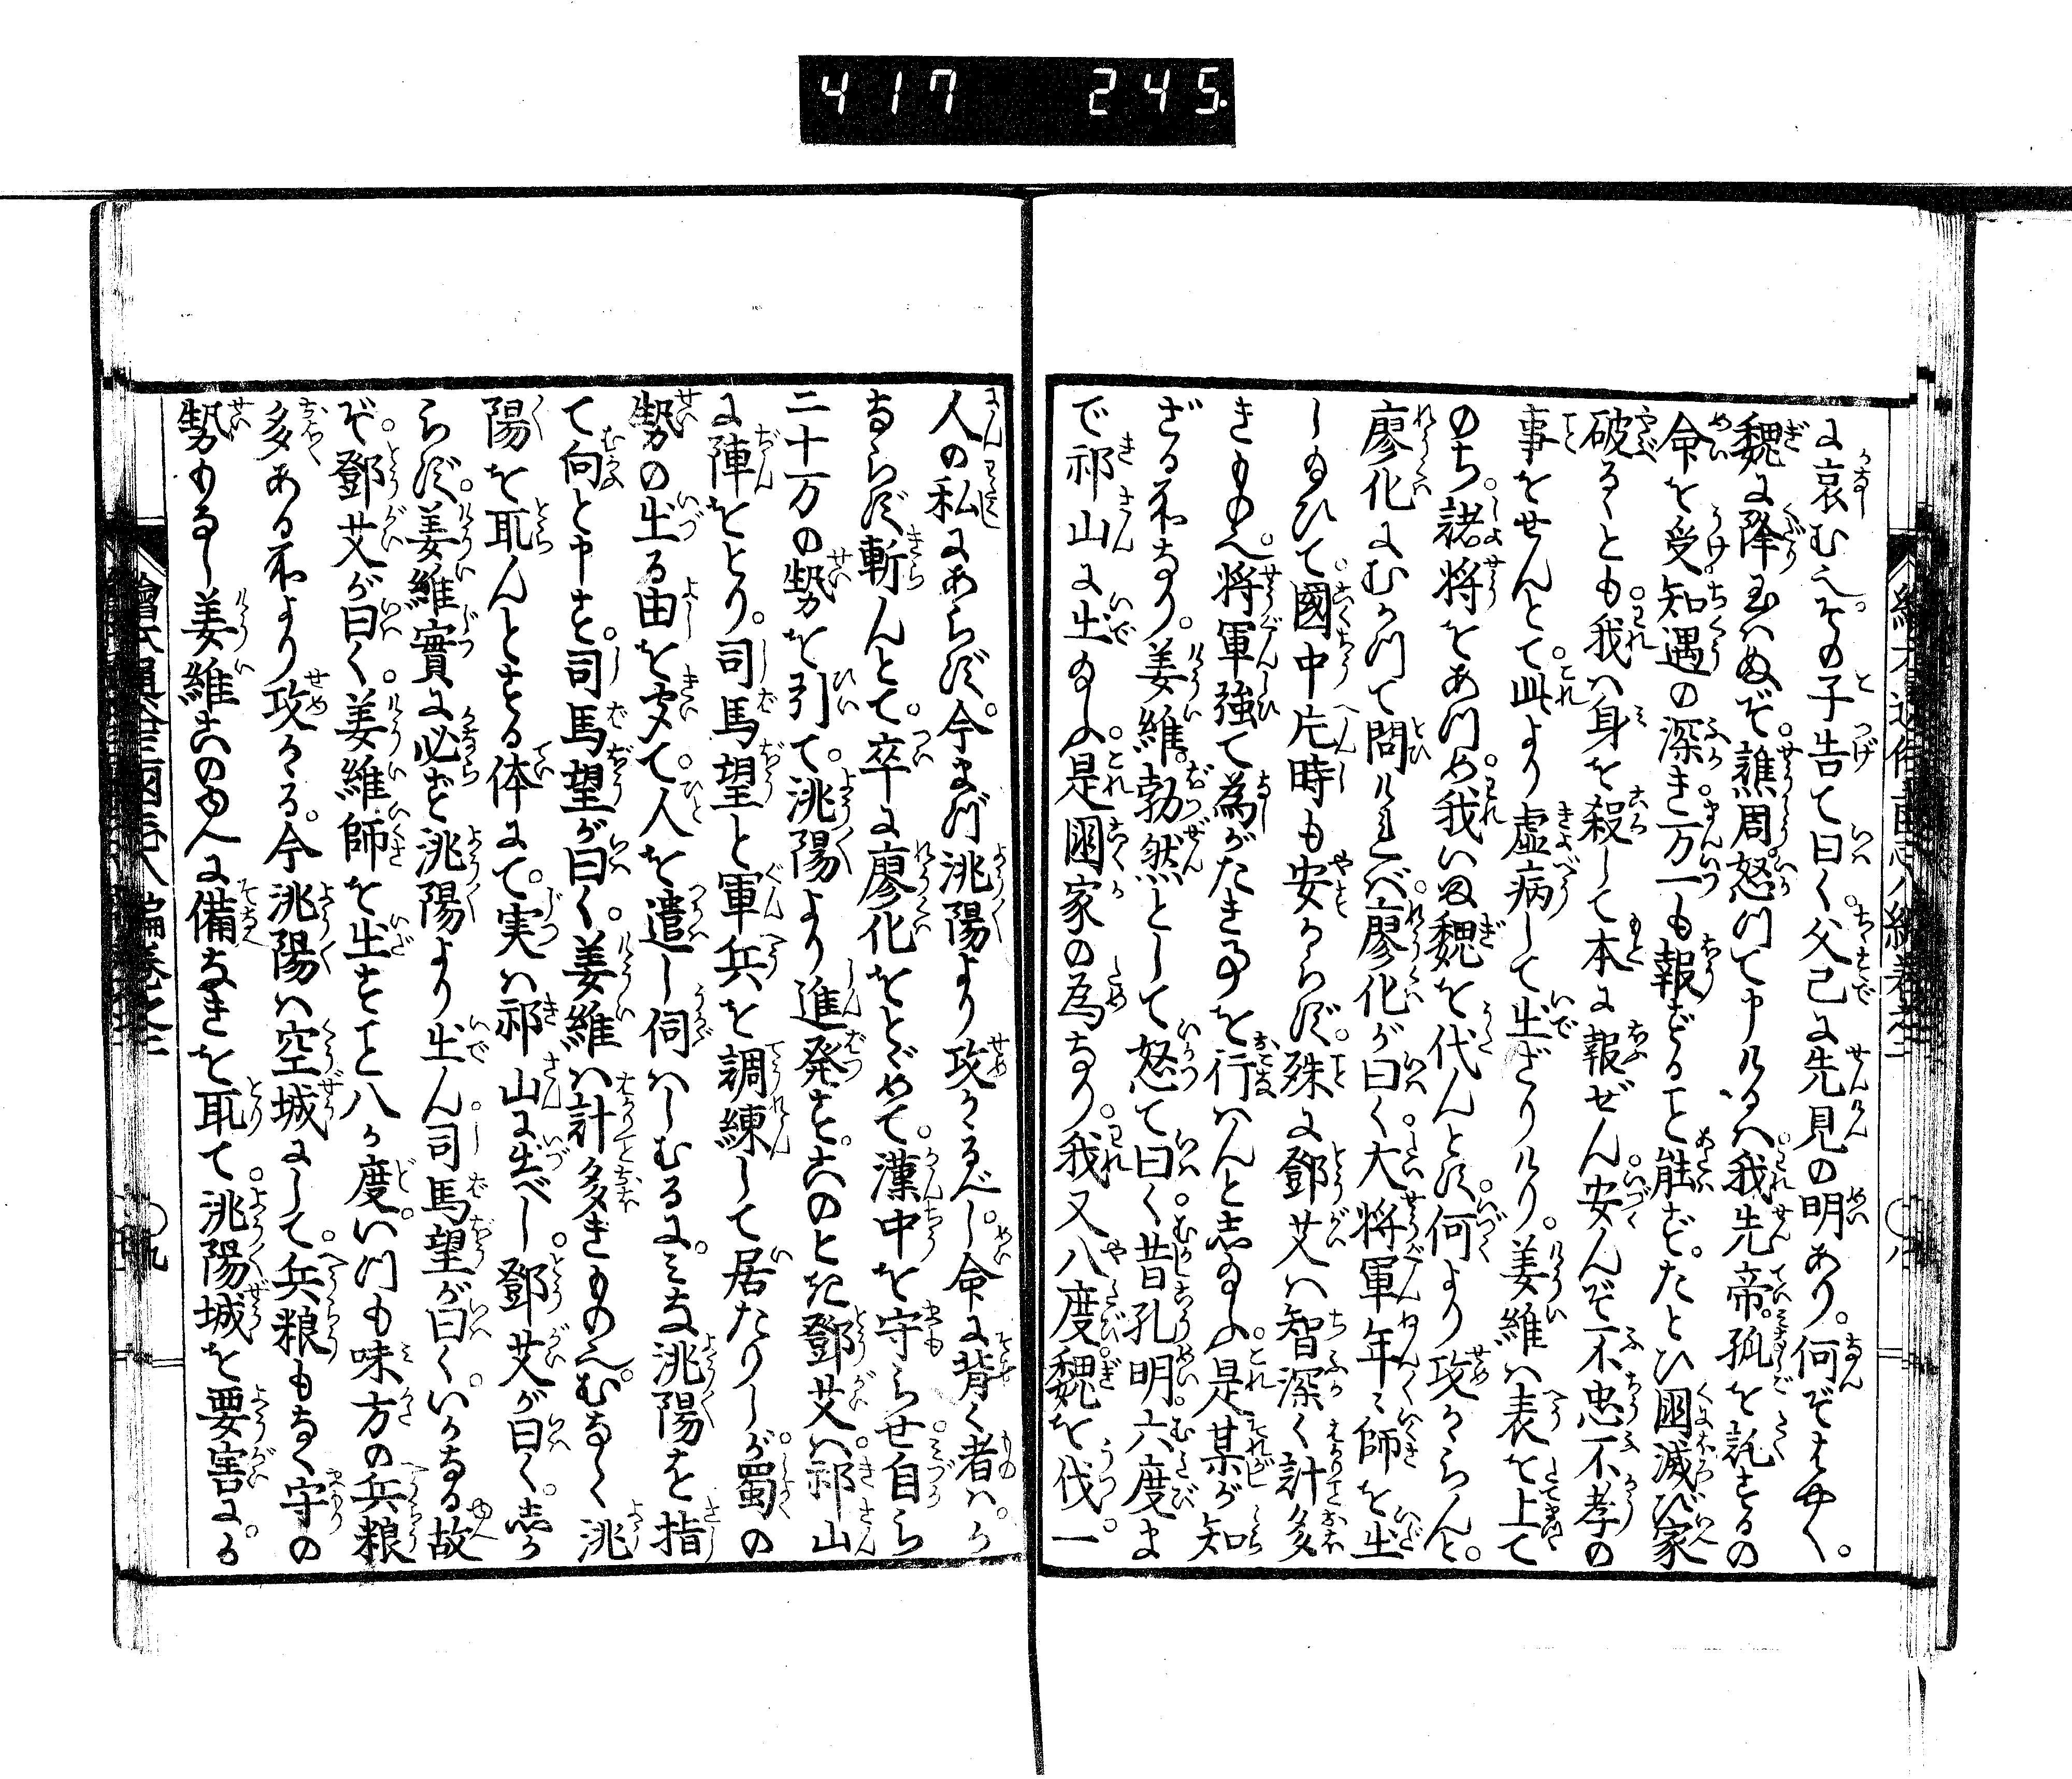 417 245
に哀む也。その子告て曰く父已に先見の明あり。何ぞはやく。
魏に降玉はぬぞ。譙周怒つて申けるは我先帝。孤を託するの
命を受。知遇の深き。万一も報ずること能ず。たとひ國滅び家
破るゝとも。我は身を殺して本に報ぜん。安んぞ不忠不孝の
事をせんとて。此より虚病して出ざりけり。姜維は表を上て
のち。諸将をあつめ。我いま魏を伐んとす。何より攻からんと。
廖化にむかつて問ければ。廖化が曰く。大将軍年々師を出
し給ひて。國中片時も安からず。殊に鄧艾は智深く計多
きもの也。将軍強て為がたき事を行はんとし給ふ。是某が知
ざる所なり。姜維。勃然として怒て曰く。昔孔明。六度ま
で祁山に出給ふ。是國家の為なり。我又八度。魏を伐。一
人の私にあらず。今まづ洮陽より攻かるべし。命に背く者は。か
ならず斬んとて。卒に廖化をとゞめて。漢中を守らせ。自ら
二十万の勢を引て。洮陽より進発す。このとき鄧艾は。祁山
に陣をとり。司馬望と軍兵を調練して居たりしが。蜀の
勢の出る由を聞て。人を遣し伺はしむるに。みな洮陽を指
て向と申す。司馬望が曰く。姜維は計多きもの也。むなしく洮
陽を取んとする体にて。実は祁山に出べし。鄧艾が曰く。しか
らず。姜維實に必ず洮陽より出ん。司馬望が曰く。いかなる故
ぞ。鄧艾が曰く。姜維師を出すこと八か度。いつも味方の兵粮
多ある所より攻かる。今洮陽は空城にして。兵粮もなく守の
勢もなし。姜維このゆへに備なきを取て。洮陽城を要害にか